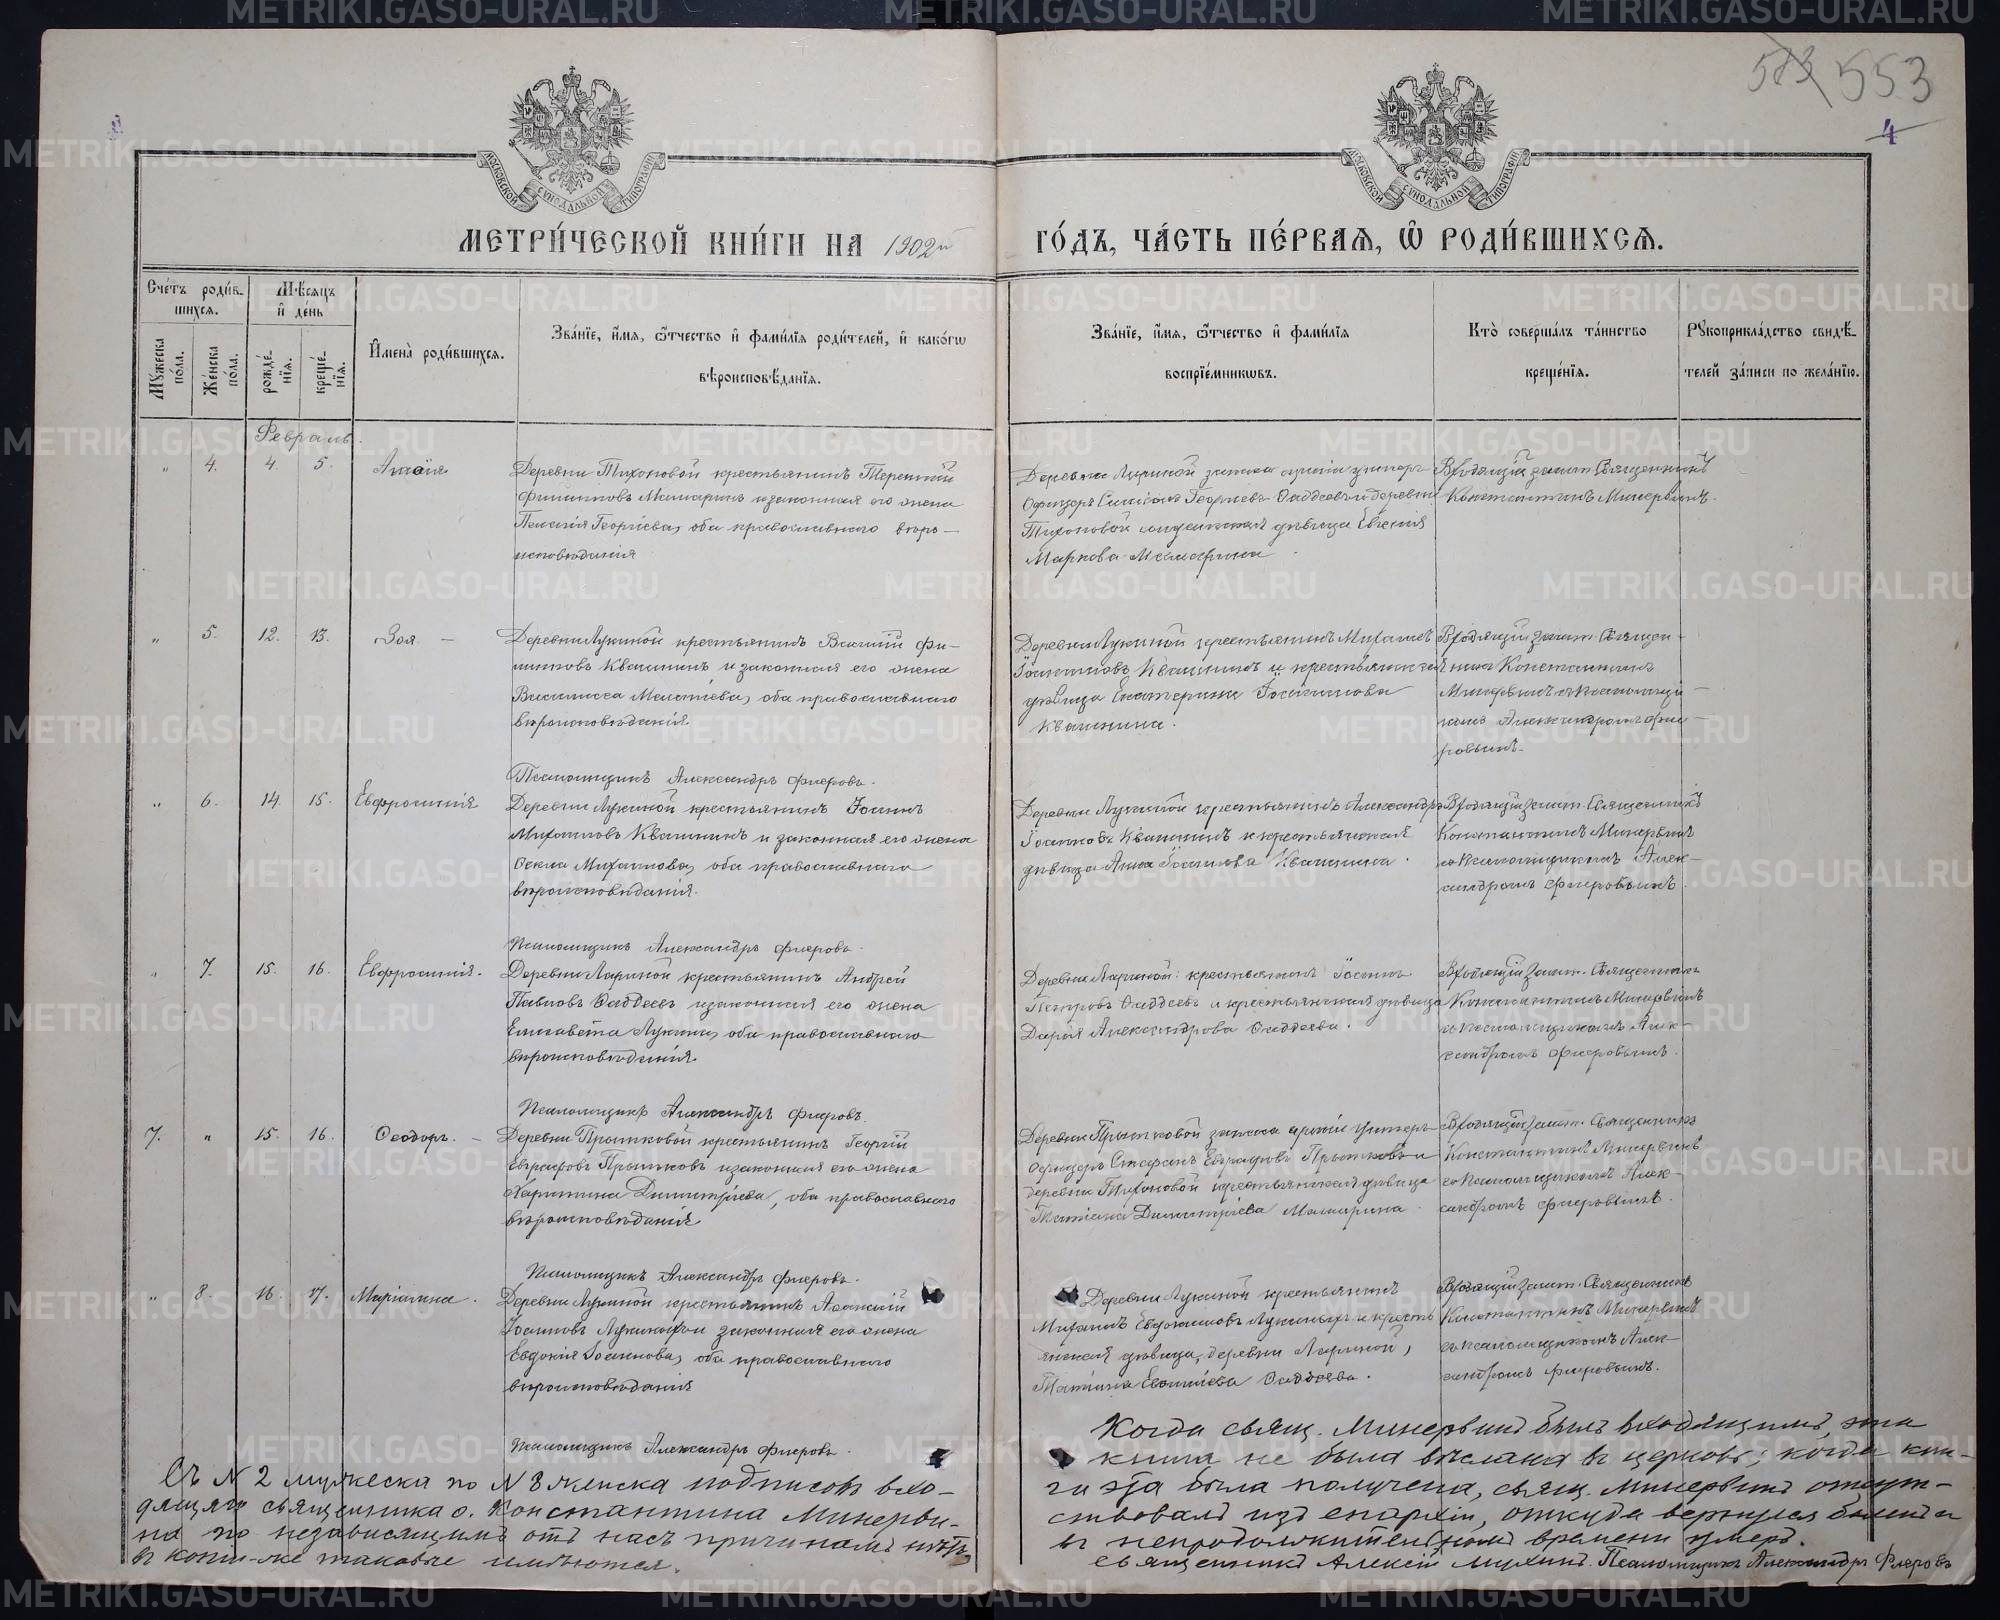 553
4
МОСКОВСКОЙ СѴНОДАЛЬНОЙ ТИПОГРАФІИ
МОСКОВСКОЙ СѴНОДАЛЬНОЙ ТИПОГРАФІИ
МЕТРИ́ЧЕСКОЙ КНИ́ГИ НА 1902й
ГО́ДЪ, ЧА́СТЬ ПЕ́РВАѦ, Ѽ РОДИ́ВШИХСѦ.
Сче́тъ роди́в-
шихсѧ.
Мꙋ́жеска по́ла.
Же́нска по́ла.
Мѣ́сѧцъ и҆ де́нь
рожде́-нїѧ.
креще́-нїѧ.
И҆мена̀ роди́вшихсѧ.
Зва́нїе, и҆́мѧ, ѻ҆́тчество и҆ фами́лїѧ роди́телей, и҆ како́гѡ
вѣроисповѣ́данїѧ.
Зва́нїе, и҆́мѧ, ѻ҆́тчество и҆ фами́лїѧ
воспрїе́мникѡвъ.
Кто̀ соверша́лъ та́инство
креще́нїѧ.
Рꙋкоприкла́дство свидѣ́-
телей за́писи по жела́нїю.
Февраль.
" 4. 4. 5.
Деревни Тихоновой крестьянинъ Терентій
Филипповъ Мамаринъ и законная его жена
Пелагія Георгіева, оба православнаго вѣро-
исповѣданія
Деревни Лариной запаса арміи унтеръ
Офицеръ Георгіевъ Ѳаддеевъ и деревни
Тихоновой крестьянская дѣвица Евгенія
Маркова Мамарина
Входящій запит. Священникъ
Константинъ Минервинъ.
" 5. 12. 13. Зоя
Деревни Лукиной крестьянинъ Василій Фи-
липповъ Квашнинъ и законная его жена
Василисса Мелетіева, оба православнаго
вѣроисповѣданія
Деревни Лукиной крестьянинъ Михаилъ
Іоанновъ Квашнинъ и крестьянская
дѣвица Екатерина Іоаннова
Квашнина.
Входящій запит. Священ-
никъ Константинъ
Минервинъ съ псаломщи-
комъ Александромъ Фле-
ровымъ.
Псаломщикъ Александръ Флеровъ.
" 6. 14. 15. Евфросинія
Деревни Лукиной крестьянинъ Іоаннъ
Михаиловъ Квашнинъ и законная его жена
Ѳекла Михаилова, оба православнаго
вѣроисповѣданія.
Деревни Лукиной крестьянинъ Александръ
Іоанновъ Квашнинъ и крестьянская
дѣвица Анна Іоаннова Квашнина.
Входящій запит. Священникъ
Константинъ Минервинъ
съ псаломщикомъ Алек-
сандромъ Флеровымъ.
Псаломщикъ Александръ Флеровъ.
" 7. 15. 16. Евфросинія.
Деревни Лариной крестьянинъ Андрей
Павловъ Ѳаддеевъ и законная его жена
Елисавета Лукина, оба православнаго
вѣроисповѣданія
Деревни Лариной крестьянинъ Іоаннъ
Петровъ Ѳаддеевъ и крестьянская дѣвица
Дарія Александрова Ѳаддеева.
Входящій запит. Священникъ
Константинъ Минервинъ
съ псаломщикомъ Алек-
сандромъ Флеровымъ.
Псаломщикъ Александръ Флеровъ.
7. " 15. 16. Ѳеодоръ.
Деревни Прытковой крестьянинъ Георгій
Евграфовъ Прытковъ и законная его жена
Харитина Димитріева, оба православнаго
вѣроисповѣданія
Деревни Прытковой запаса арміи унтеръ
Офицеръ Стефанъ Евграфовъ Прытковъ и
деревни Тихоновой крестьянская дѣвица
Татіана Димитріева Мамарина.
Входящій запит. Священникъ
Константинъ Минервинъ
съ псаломщикомъ Алек-
сандромъ Флеровымъ.
Псаломщикъ Александръ Флеровъ.
" 8. 16. 17. Маріамна.
Деревни Лукиной крестьянинъ Аѳанасій
Іоанновъ законная его жена
Евдокія Іоаннова, оба православнаго
вѣроисповѣданія
Деревни Лукиной крестьянинъ
Михаилъ Евдокимовъ и кресть-
янская дѣвица, деревни Лариной,
Татіана Ѳаддеева.
Входящій запит. Священникъ
Константинъ Минервинъ
съ псаломщикомъ Алек-
сандромъ Флеровымъ.
Псаломщикъ Александръ Флеровъ.
Съ № 2 мужеска по № 8 женска подписовъ вхо-
дящаго священника о. Константина Минерви-
на по независящимъ отъ насъ причинамъ нѣтъ,
въ копіи-же таковые имѣются.
Когда свящ. Минервинъ былъ входящимъ, эта
книга не была выслана въ церковь; когда кни-
га эта была получена, свящ. Минервинъ отсут-
ствовалъ изъ епархіи, откуда вернулся больнымъ и
въ непродолжительномъ времени умеръ.
Священникъ Алексій Мухинъ. Псаломщикъ Александръ Флеровъ
METRIKI.GASO-URAL.RU